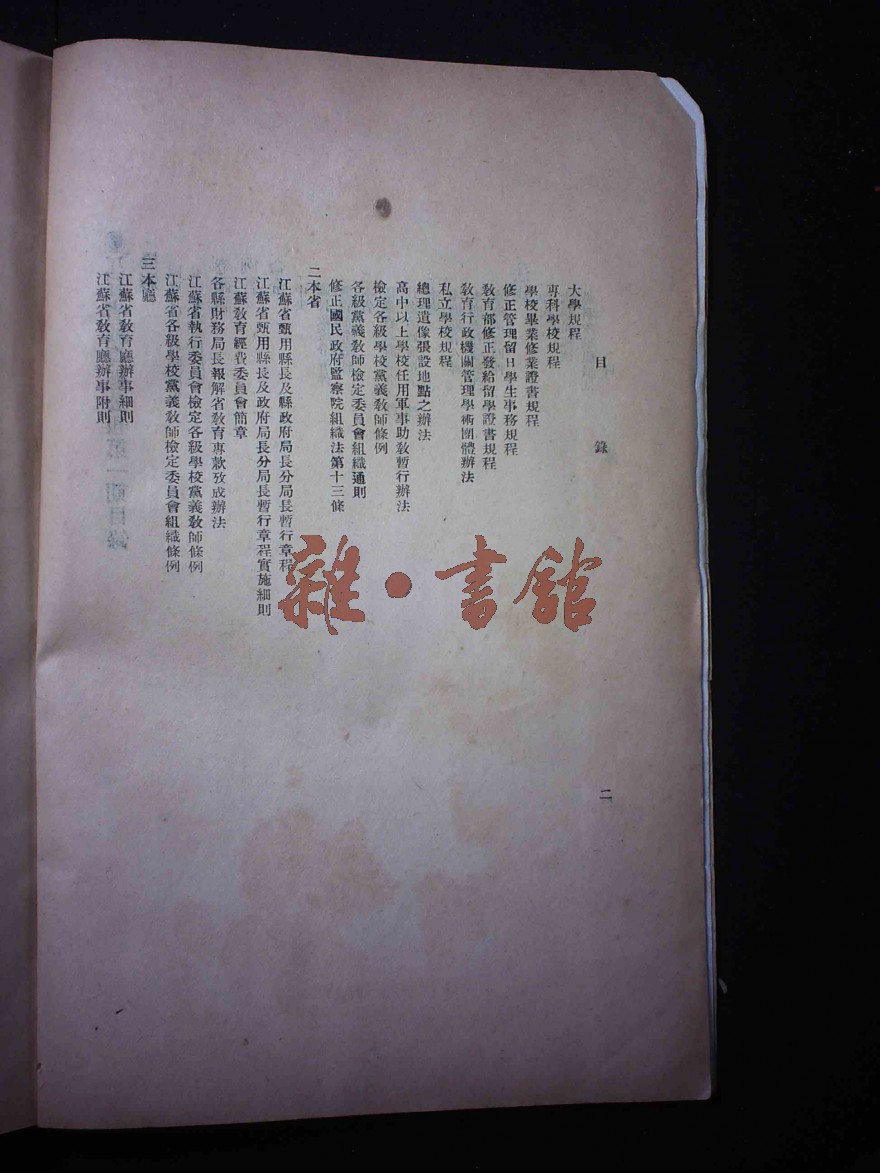 目錄 二
大學規程
專科學校規程
學校畢業修業證書規程
修正管理留日學生事務規程
敎育部修正發給留學證書規程
敎育行政機關管理學術團體辦法
私立學校規程
總理遺像張設地點之辦法
高中以上學校任用軍事助敎暫行辦法
檢定各級學校黨義敎師條例
各級黨義敎師檢定委員會組織通則
修正國民政府監察院組織法第十三條
二本省
江蘇省甄用縣長及縣政府局長分局長暫行章程
江蘇省甄用縣長及政府局長分局長暫行章程實施細則
江蘇敎育經費委員會簡章
各縣財務局長報解省敎育專款攷成辦法
江蘇省執行委員會檢定各級學校黨義敎師條例
江蘇省各級學校黨義敎師檢定委員會組織條例
三本廳
江蘇省敎育廳辦事細則
江蘇省敎育廳辦事附則
雜·書館